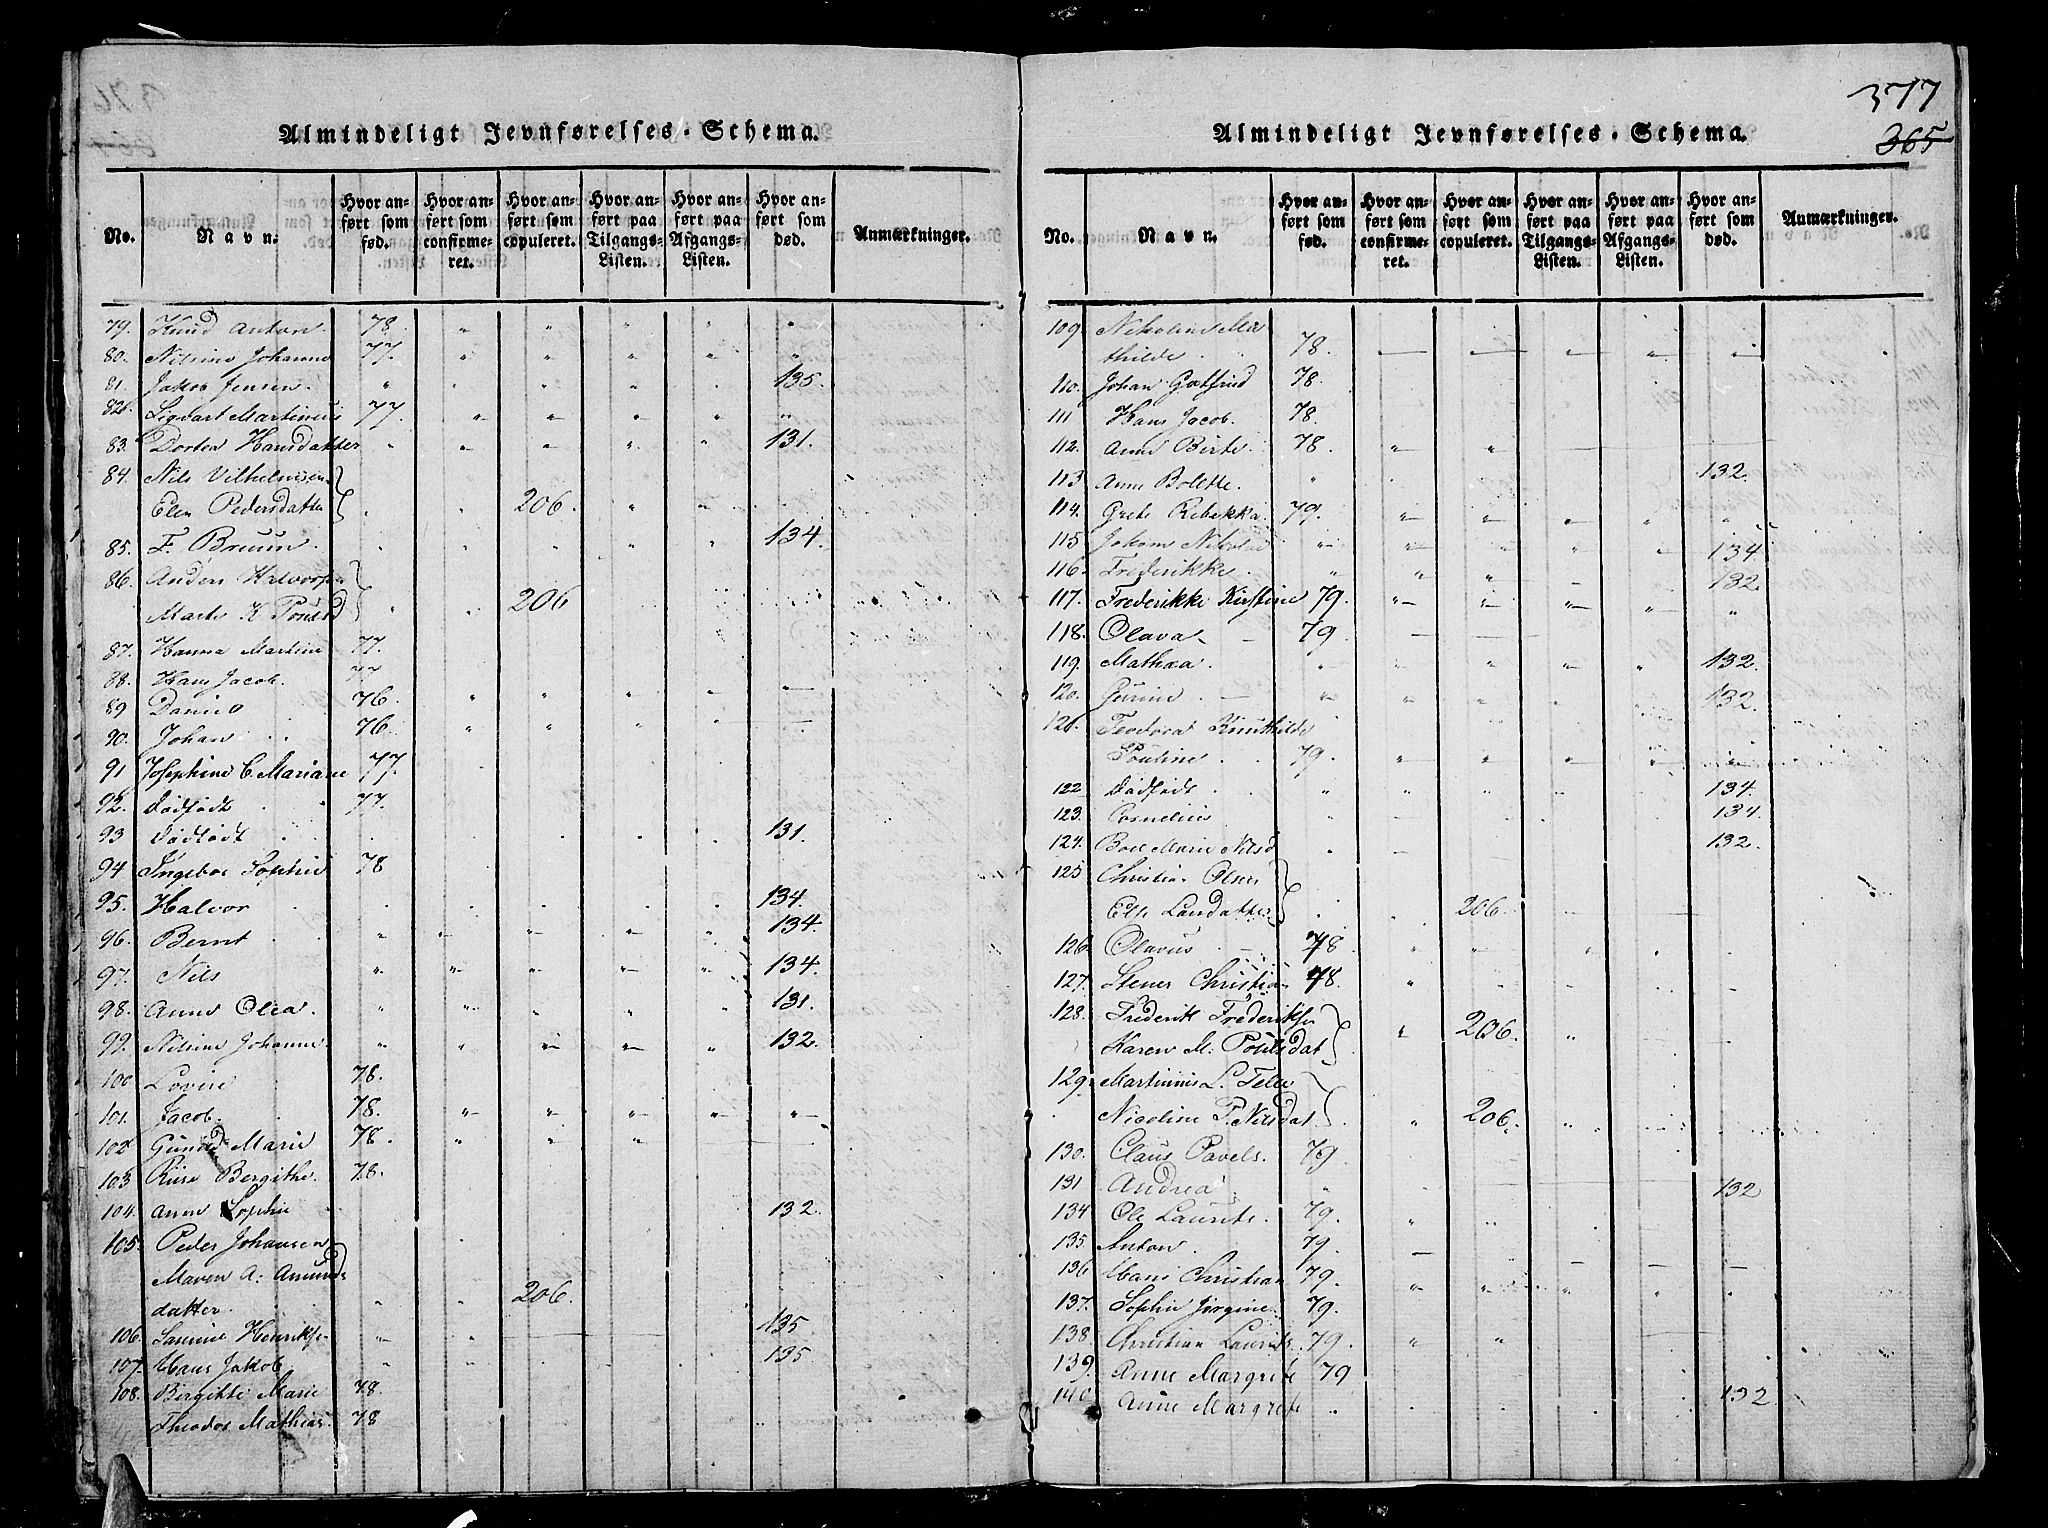 Almindeligt Jevnførelses-Schema.
No.
Navn.
Hvor anført som fød.
Hvor anført som confirmeret.
Hvor anført som copuleret.
Hvor anført paa Tilgangs-Listen.
Hvor anført paa Afgangs-Listen.
Hvor anført som død.
Anmærkninger.
79. Knud Anton. 78. " " " " "
80. Nilsine Johanne 77. " " " " "
81. Jakob Jensen. " " " " " 135.
82. Sigvart Martinius 77. " " " " "
83. Dortea Hansdatter " " " " " 131.
84. Nils Vilhelmsen
Elen Pedersdatter " " 206. " "
85. F. Bruun. " " " " " 134.
86. Anders Halvorsen
Marte K Poulsd " " 206
87. Hanna Martine 77.
88. Hans Jacob. 77
89 Daniel 76. " " " "
90. Johan 76. " " " "
91 Josephine C. Mariane 77.
92. Dødfødt 77.
93 Dødfødt 131.
94 Ingebor Sophie 78
95. Halvor 134.
96. Bernt " " " " " 134.
97. Nils " " " " " 134.
98. Anne Olea. " " " " 131.
99. Nilsine Johanne. " " " " " 132.
100 Lovise 78.
101. Jacob. 78. " " " " "
102 Gunild Marie 78. " " "
103 Riise Bergithe. 78.
104. Anne Sophie 132.
105. Peder Johansen
Maren A: Amunds
datter. " " 206.
106. Samine Henriksen " " 135.
107. Hans Jakob. " " 135
108. Bergitte Marie 78.
Theodor Mathias. 78
377
365
Almindeligt Jevnførelses-Schema.
No.
Navn.
Hvor anført som fød.
Hvor anført som confirmeret.
Hvor anført som copuleret.
Hvor anført paa Tilgangs-Listen.
Hvor anført paa Afgangs-Listen.
Hvor anført som død.
Anmærkninger.
109. Nikoline Ma
thilde 78.
110. Johan Gotfried 78.
111 Hans Jacob. 78.
112. Anne Birte. 78. " "
113 Anne Bolette. " 132.
114. Grete Rebekka. 79. " " " " "
115 Johan Nikolai " " " " " 134.
116. Frederikke. " " " 132.
117. Frederikke Kirstine 79. " " " " "
118. Olava 79.
119. Mathea. " " " " 132.
120. " " " 132.
121. Teodora Knuthilde
Pouline 79. " " " " "
122 Dødfødt " " " " 134.
123. Cornelius 134.
124. Boel Marie Nilsd 132.
125 Christian Olsen
Else Larsdatter 206.
126. Olavus 78. " " " "
127. Stener Christian 78.
128. Frederik Frederiksen
Karen M: Poulsdat " 206. "
129. Martinius L. Telle
Nicoline P. Nilsdat " 206.
130. Claus Pavels. 79
131 Andrea " 132
134 Ole Laurits. 79. " "
135 Anton. 79.
136 Hans Christian 79.
137. Sophie Jørgine. 79.
138 Christian Laurits. 79. " "
139. Anne Margrete 79
140 Anne Margrete " 132